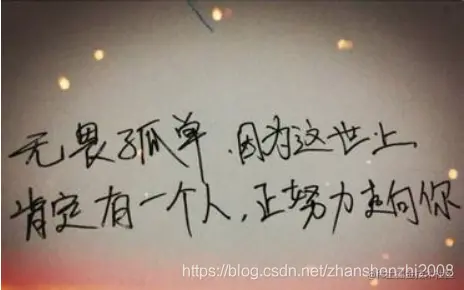 无畏孤单.因为这世上,
肯定有一个人,正努力走向你
https://blog.csdn.net/zhanshenzhi2008